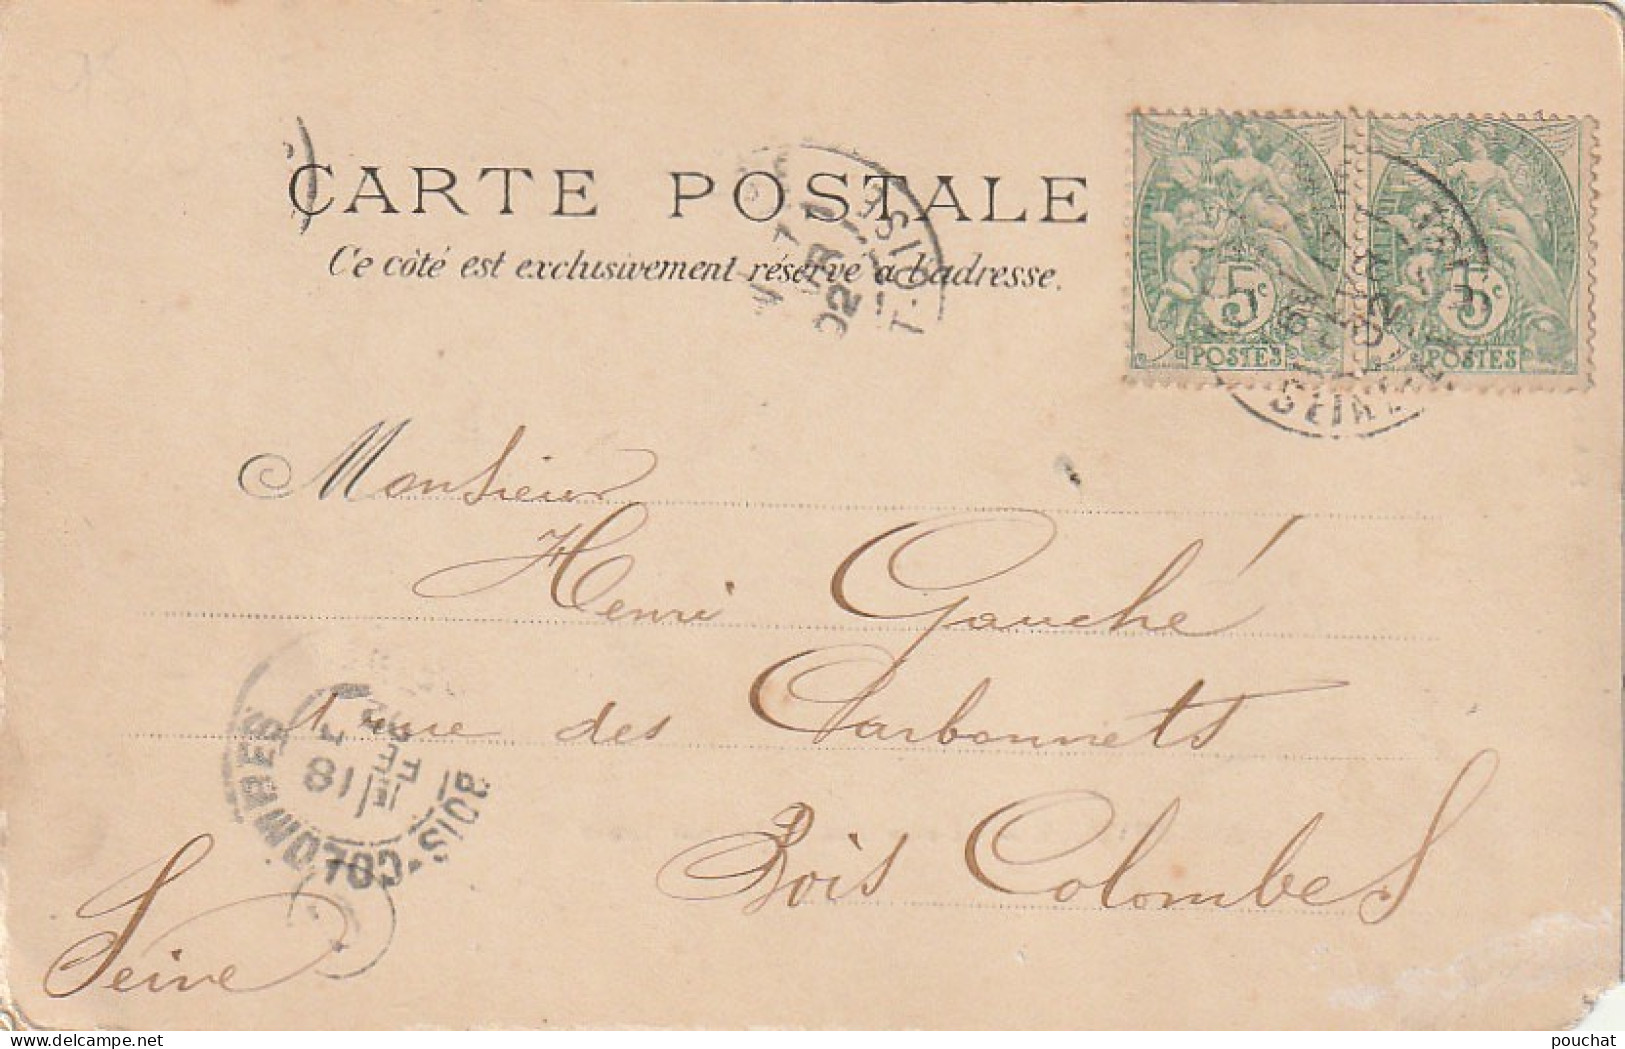 CARTE POSTALE
Ce côté est exclusivement réservé à l'adresse.
5c
POSTES
5c
POSTES
02
Monsieur
Henri Gauché
rue des Carbonnets
Bois Colombes
Seine
BOIS-COLOMBES
18
FEVR
02
pouchat